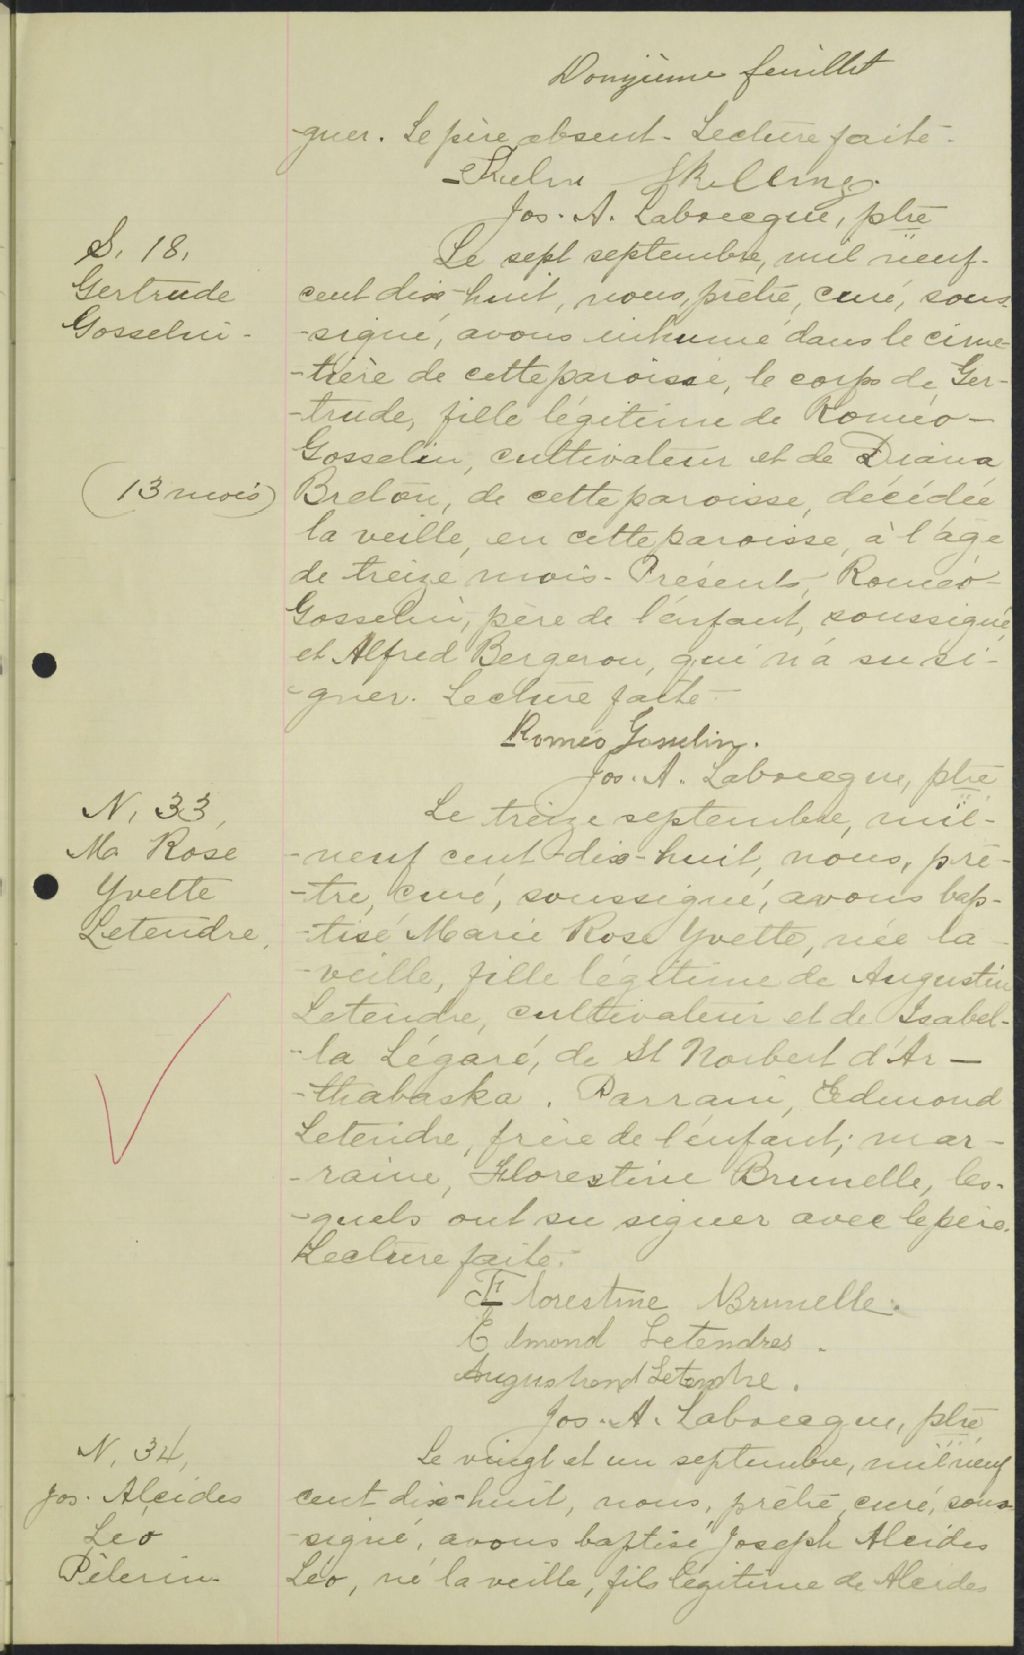 Douzième feuillet
gner. Le père absent. Lecture faite.
Jos. A. Labrecque, ptre
S. 18.
Gertrude
Gosselin.
(13 mois)
Le sept septembre, mil neuf-
cent dix-huit, nous, prêtre, curé, sous-
-signé, avons inhumé dans le cime-
-tière de cette paroisse, le corps de Ger-
-trude, fille légitime de Roméo
Gosselin, cultivateur et de Diana
Breton, de cette paroisse, décédée
la veille, en cette paroisse, à l'âge
de treize mois. Présents, Roméo
Gosselin, père de l'enfant, soussigné,
et Alfred Bergeron, qui n'a su si-
-gner. Lecture faite.
Roméo Gosselin.
Jos. A. Labrecque, ptre
N. 33,
Ma Rose
Yvette
Letendre,
Le treize septembre, mil-
-neuf cent-dix-huit, nous, prê-
-tre, curé, soussigné, avons bap-
-tisé Marie Rose Yvette, née la
-veille, fille légitime de Augustin
Letendre, cultivateur et de Isabel-
-la Légaré, de St Norbert d'Ar-
-thabaska. Parrain, Edmond
Letendre, frère de l'enfant; mar-
-raine, Florestine Brunelle, les-
-quels ont su signer avec le père.
Lecture faite.
Florestine Brunelle.
Edmond Letendres.
Letendre.
Jos. A. Labrecque, ptre
N. 34,
Jos. Alcides
Léo
Pèlerin
Le vingt et un septembre, mil neuf
cent dix-huit, nous, prêtre, curé, sous-
-signé, avons baptisé Joseph Alcides
Léo, né la veille, fils légitime de Alcides